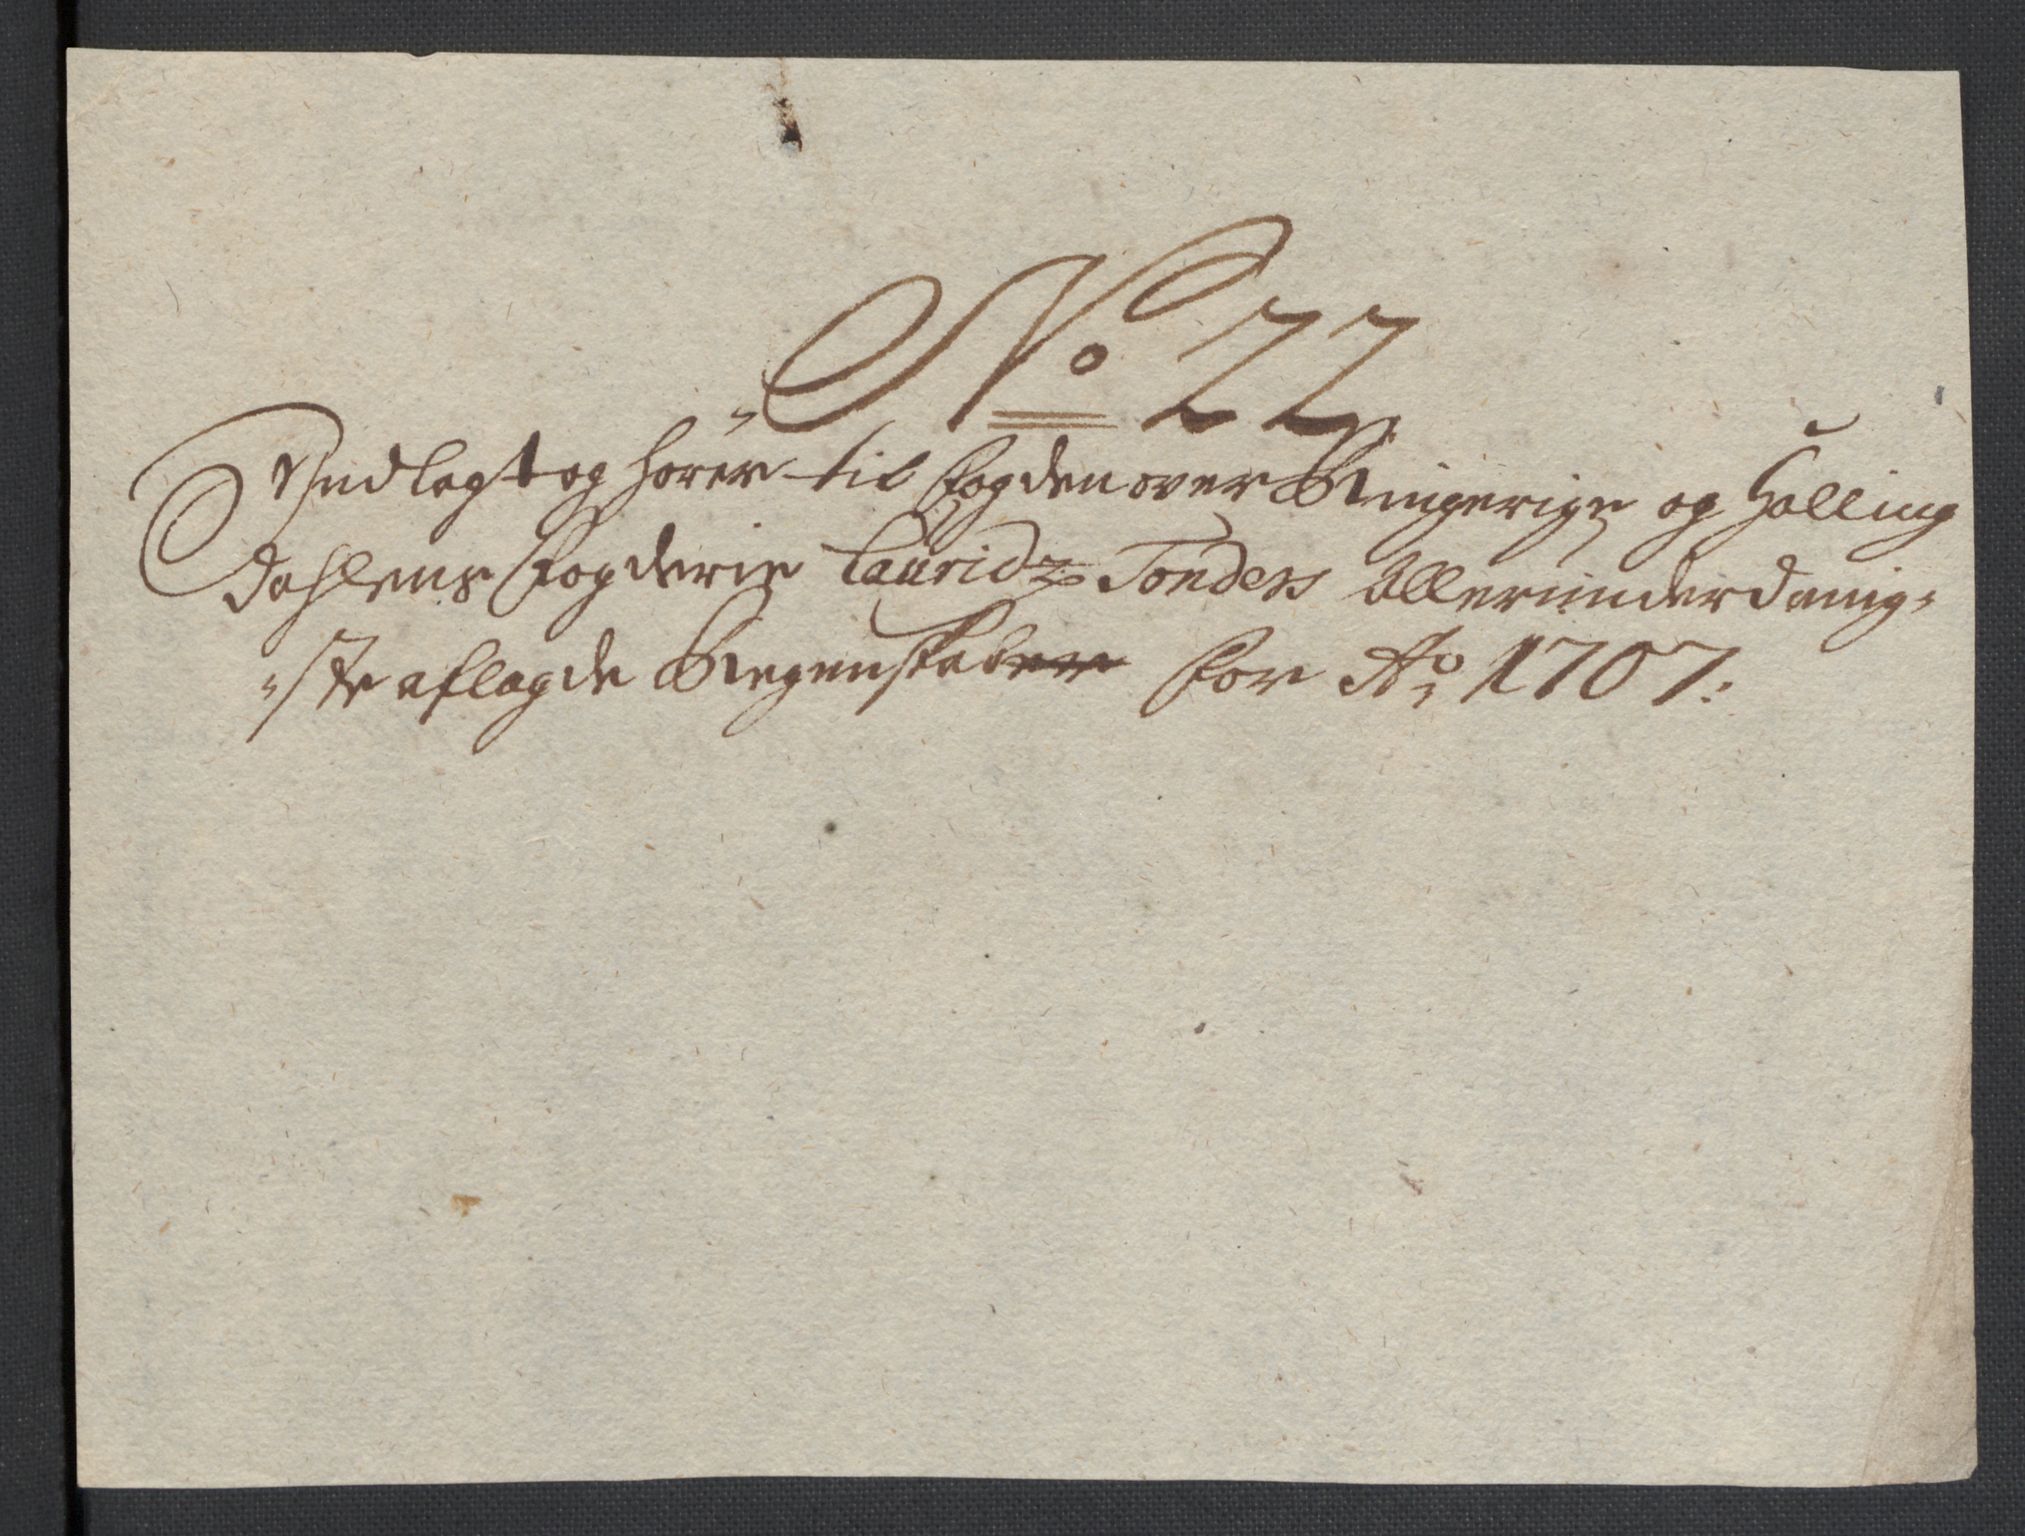 No 22
Indlagt og hører til fogden over Ringerige og Halling
Dahlens fogderie Lauridz Tonders Allerunderdanig-
-ste aflagde Regenskaber for Ao 1707.